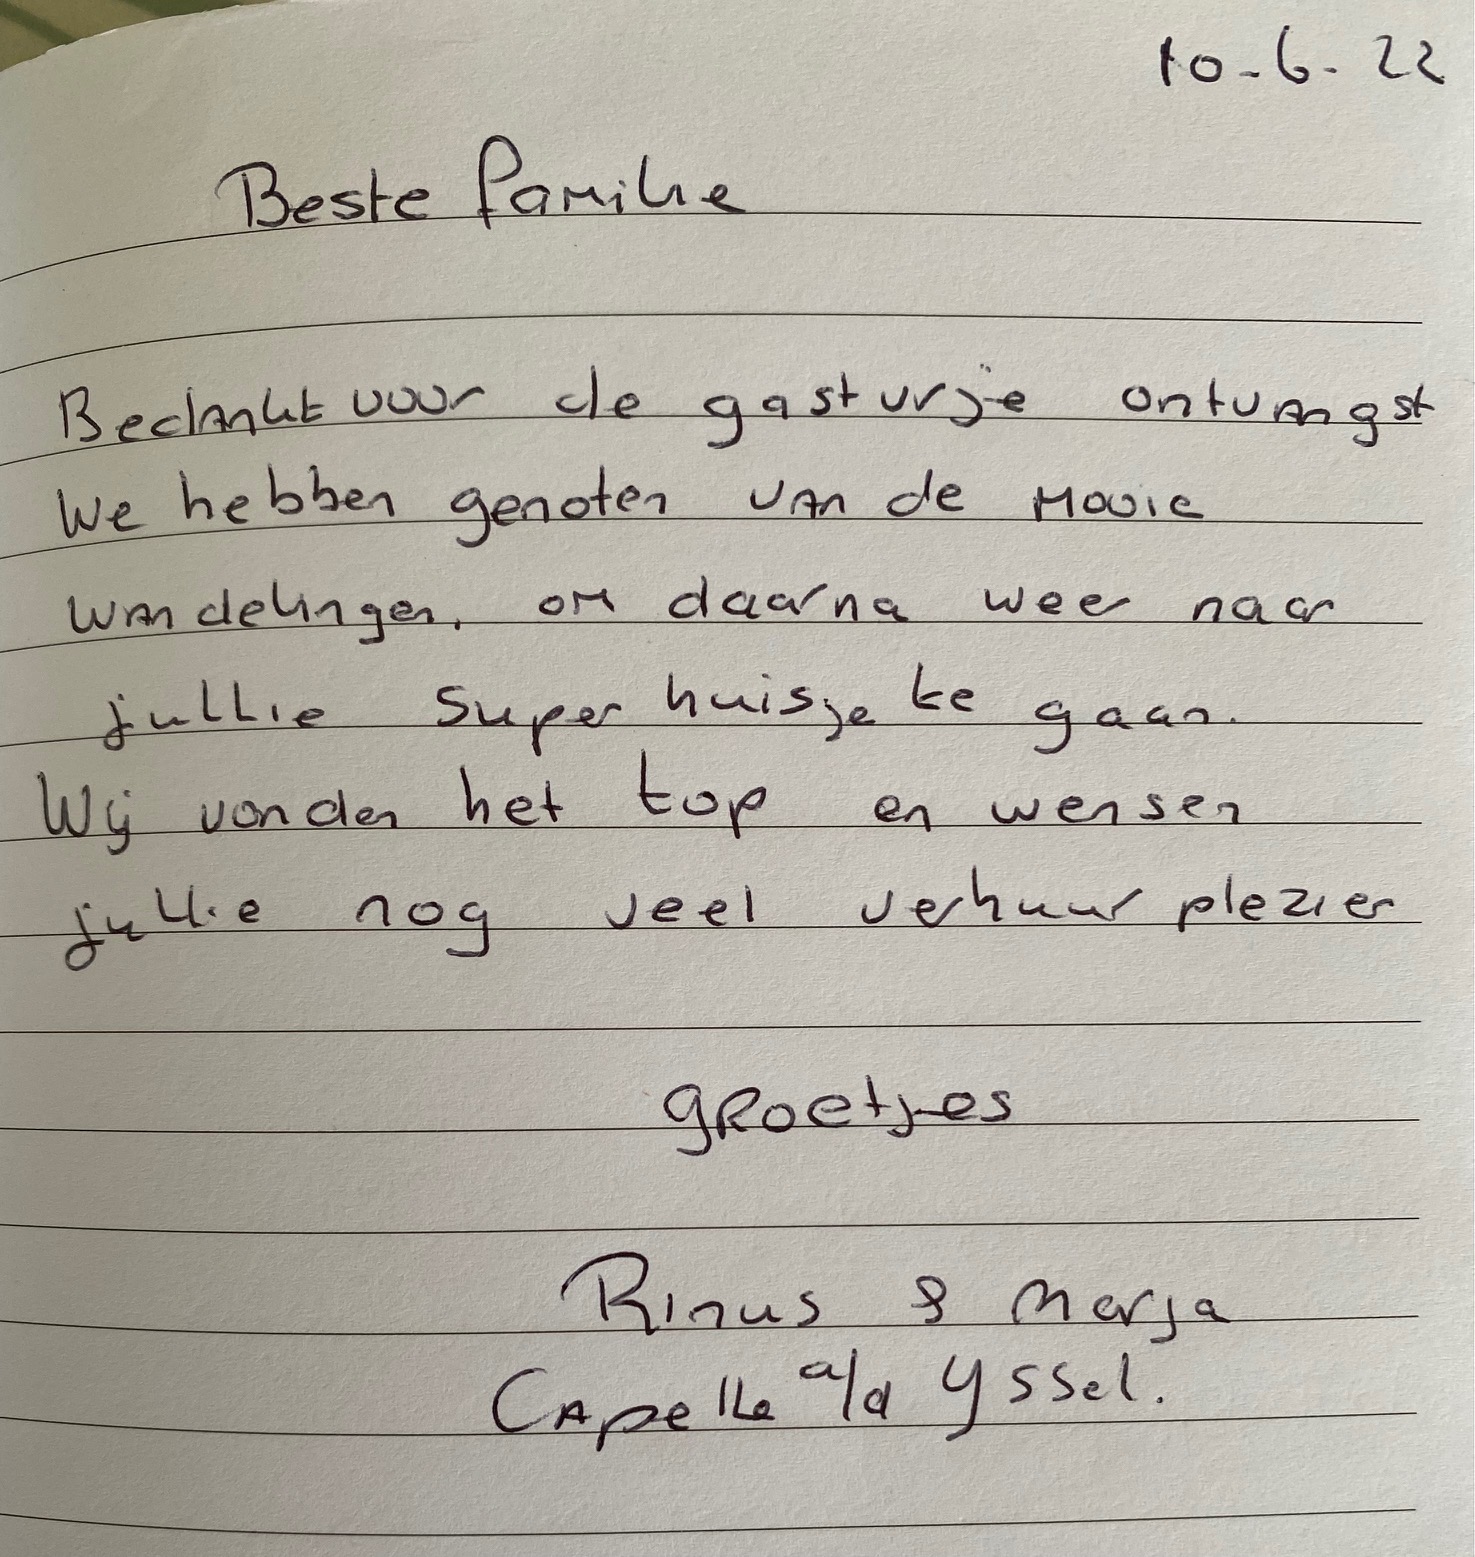 10-6-22
Beste familie
Bedankt voor de gastvrije ontvangst
We hebben genoten van de mooie
wandelingen, om daarna weer naar
jullie super huisje te gaan.
Wij vonden het top en wensen
jullie nog veel verhuur plezier
groetjes
Rinus & Marja
Capelle a/d Yssel.